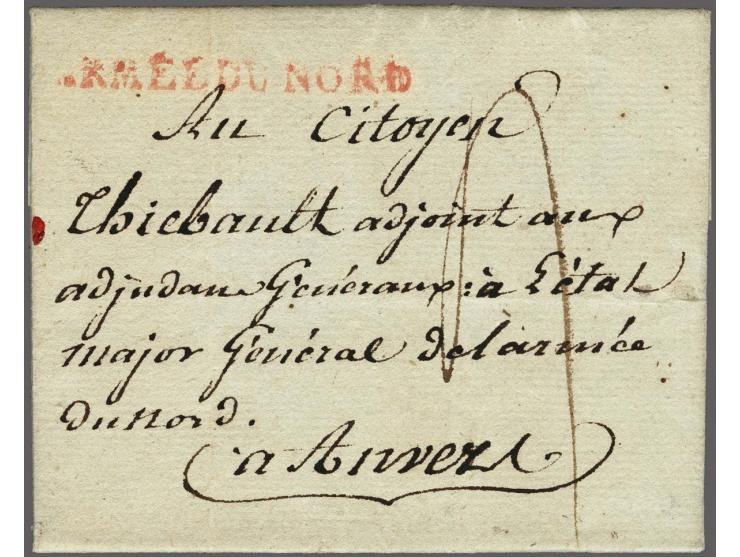 ARMÉE DU NORD
Au Citoyen
Thiebault adjoint aux
adjudans Généraux à L'état
major Général de l'armée
Du Nord.
a Anvers